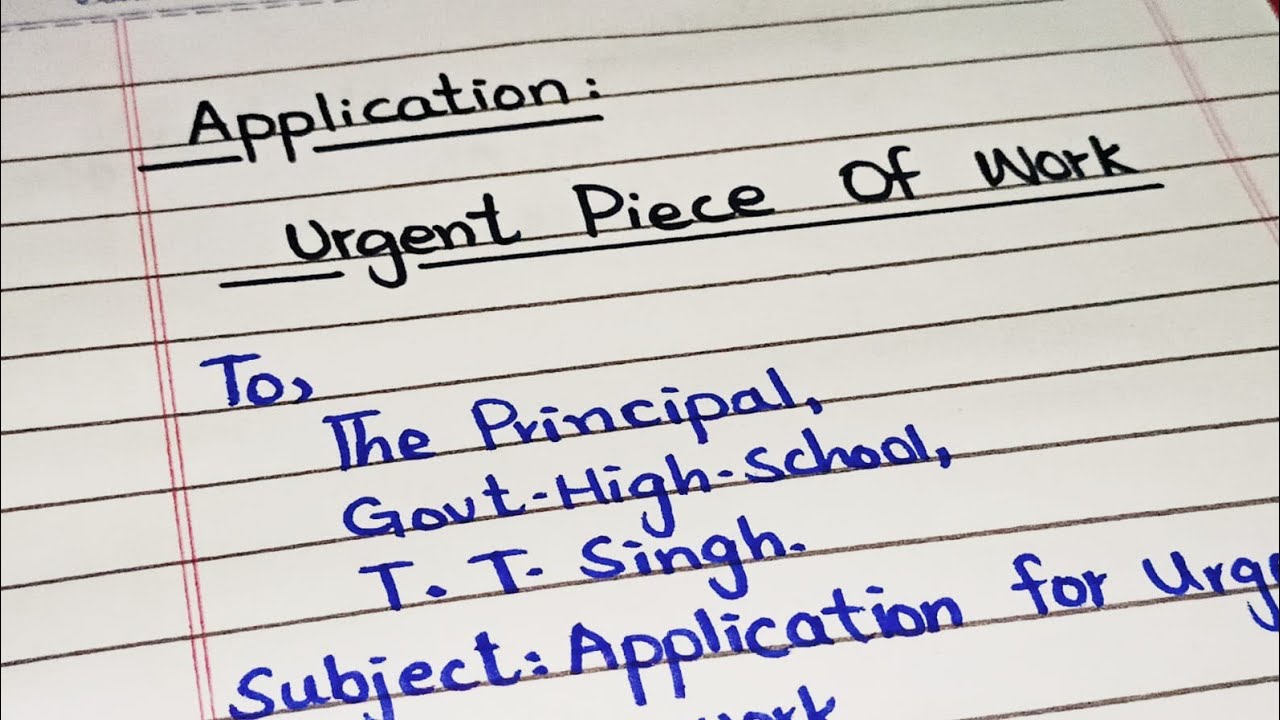 Application:
Urgent Piece Of Work
To,
The Principal,
Govt-High-School,
T. T. Singh.
Subject: Application for